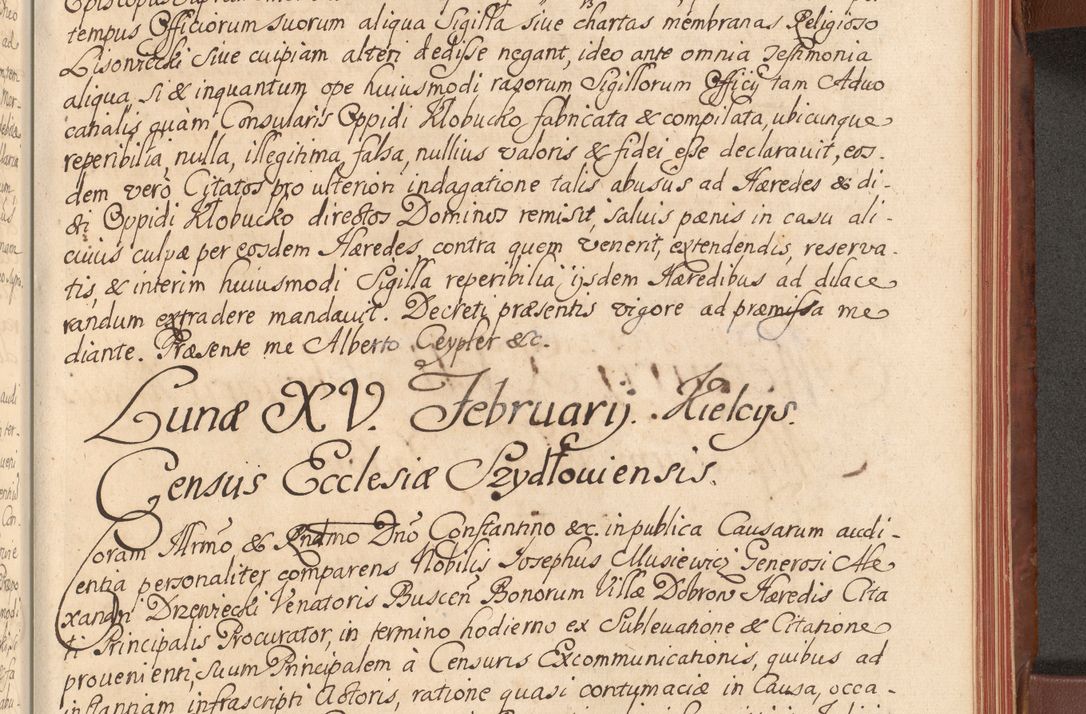 tempus Officiorum suorum aliqua Sigilla siue chartas membranas Religioso
Lisowiecki siue cuipiam alteri dedisse negant, ideo ante omnia Testimonia
aliqua, si & inquantum ope huiusmodi rasorum Sigillorum Officij tam Aduo
catialis quàm Consularis Oppidi Kłobucko fabricata & compilata, ubicunque
reperibilia, nulla, illegitima, falsa, nullius valoris & fidei esse declarauit, eos-
dem verò Citatos pro ulteriori indagatione talis abusus ad Hæredes & di-
cti Oppidi Kłobucko directos Dominos remisit, saluis pænis in casu ali-
cuius culpæ per eosdem Hæredes, contra quem venerit, extendendis, reserva
tis, & interim huiusmodi Sigilla reperibilia, ijsdem Hæredibus ad dilace
randum extradere mandauit. Decreti præsentis vigore ad præmissa me
diante. Præsente me Alberto Ceypler &c.
Lunæ XV. Februarij. Kielcijs.
Census Ecclesiæ Szydłouiensis.
Coram Illrmo & Rndmo Dnō Constantino &c. in publica Causarum audi-
entia personaliter comparens Nobilis Josephus Musiewicz Generosi Ale
xandri Drzewiecki Venatoris Buscen̄ Bonorum Villæ Dobrow Hæredis Cita
ti Principalis Procurator, in termino hodierno ex Subleuatione & Citatione
prouenienti, suum Principalem à Censuris Excommunicationis, quibus ad
instantiam infrascripti Actoris, ratione quasi contumaciæ in Causa, occa-